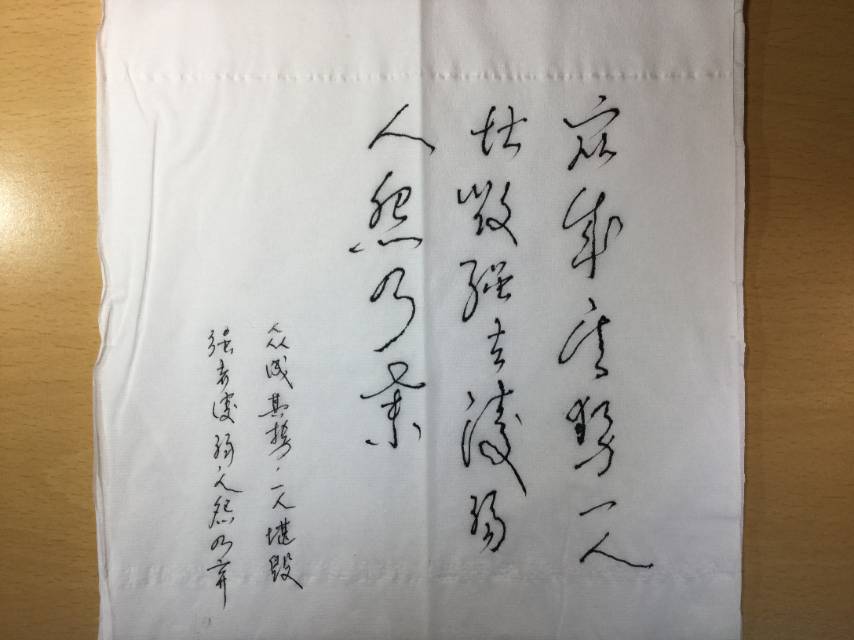 众成其势一人
堪毁强者凌弱
人怨乃弃
众成其势，一人堪毁
强者凌弱，人怨乃弃